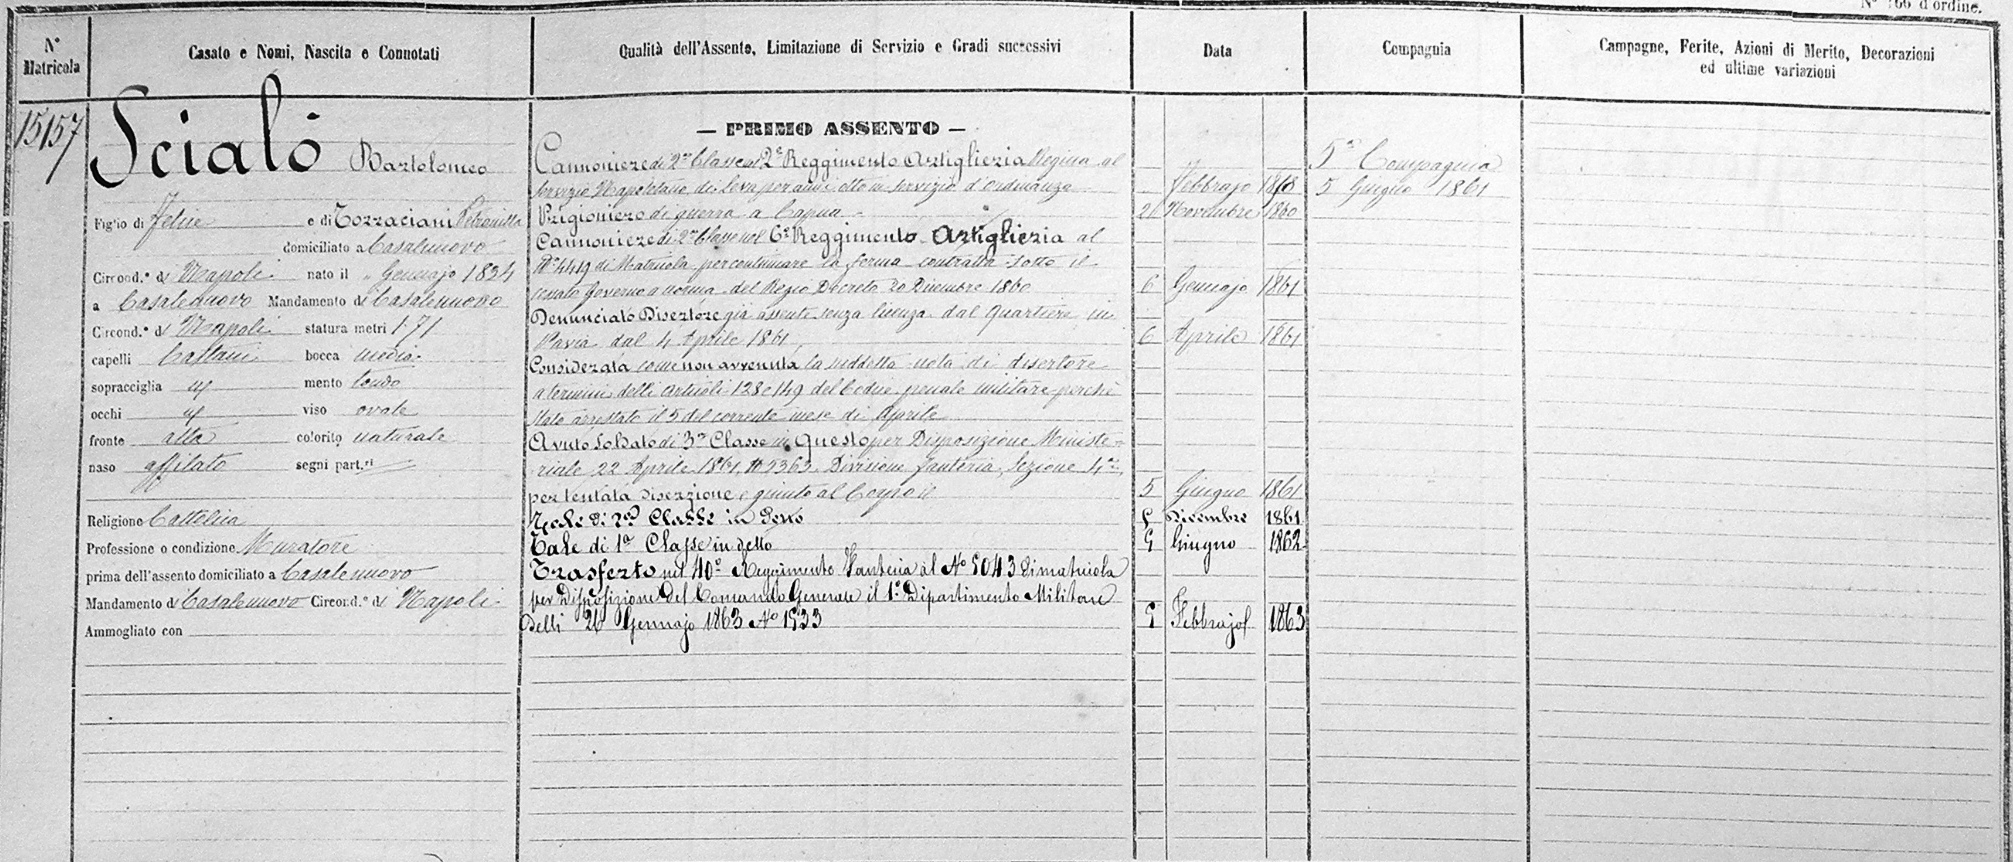 N° 166 d'ordine.
N° Matricola
Casato e Nomi, Nascita e Connotati
Qualità dell'Assento, Limitazione di Servizio e Gradi successivi
Data
Compagnia
Campagne, Ferite, Azioni di Merito, Decorazioni
ed ultime variazioni
15157
Scialò Bartolomeo
Figlio di Felice e di Tozzaciani Petronilla
domiciliato a Casalnuovo
Circond.° di Napoli nato il " Gennajo 1834
a Casalenuovo Mandamento di Casalenuovo
Circond.° di Napoli statura metri 1.71
capelli Castani bocca media
sopracciglia id mento tondo
occhi id viso ovale
fronte alta colorito naturale
naso affilato segni part.ri
Religione Cattolica
Professione o condizione Muratore
prima dell'assento domiciliato a Casalenuovo
Mandamento di Casalenuovo Circond.° di Napoli
Ammogliato con
— PRIMO ASSENTO —
Cannoniere di 2a Classe al 2° Reggimento Artiglieria Regina al
servizio Napoletano di Leva per anni otto in servizio d'Ordinanza Febbrajo
Prigioniero di guerra a Capua 2 Novembre 1860
Cannoniere di 2a Classe nel 6° Reggimento Artiglieria al
N° 4419 di Matricola per continuare la ferma contratta sotto il
cessato Governo a norma del Regio Decreto 20 Dicembre 1860 6 Gennajo 1861
Denunciato Disertore già assente senza licenza dal Quartiere in
Pavia dal 4 Aprile 1861 6 Aprile 1861
Considerata come non avvenuta la suddetta nota di disertore
a termini delli articoli 138 e 149 del Codice penale militare perchè
stato arrestato il 5 del corrente mese di Aprile
Avuto Soldato di 3a Classe in Questo per Disposizione Ministe-
riale 22 Aprile 1861, N° 5363 Divisione fanteria, Sezione 4a,
per tentata diserzione e giunto al Corpo il 5 Giugno 1861
Tale di 2a Classe in detto Dicembre 1861
Tale di 1a Classe in detto Giugno 1862
Trasferto nel 40° Reggimento Fanteria al N° 5043 di matricola
per Disposizione del Comando Generale il 1° Dipartimento Militare
delli 26 Gennajo 1863 N° 1533 Febbrajo 1863
5a Compagnia
5 Giugno 1861